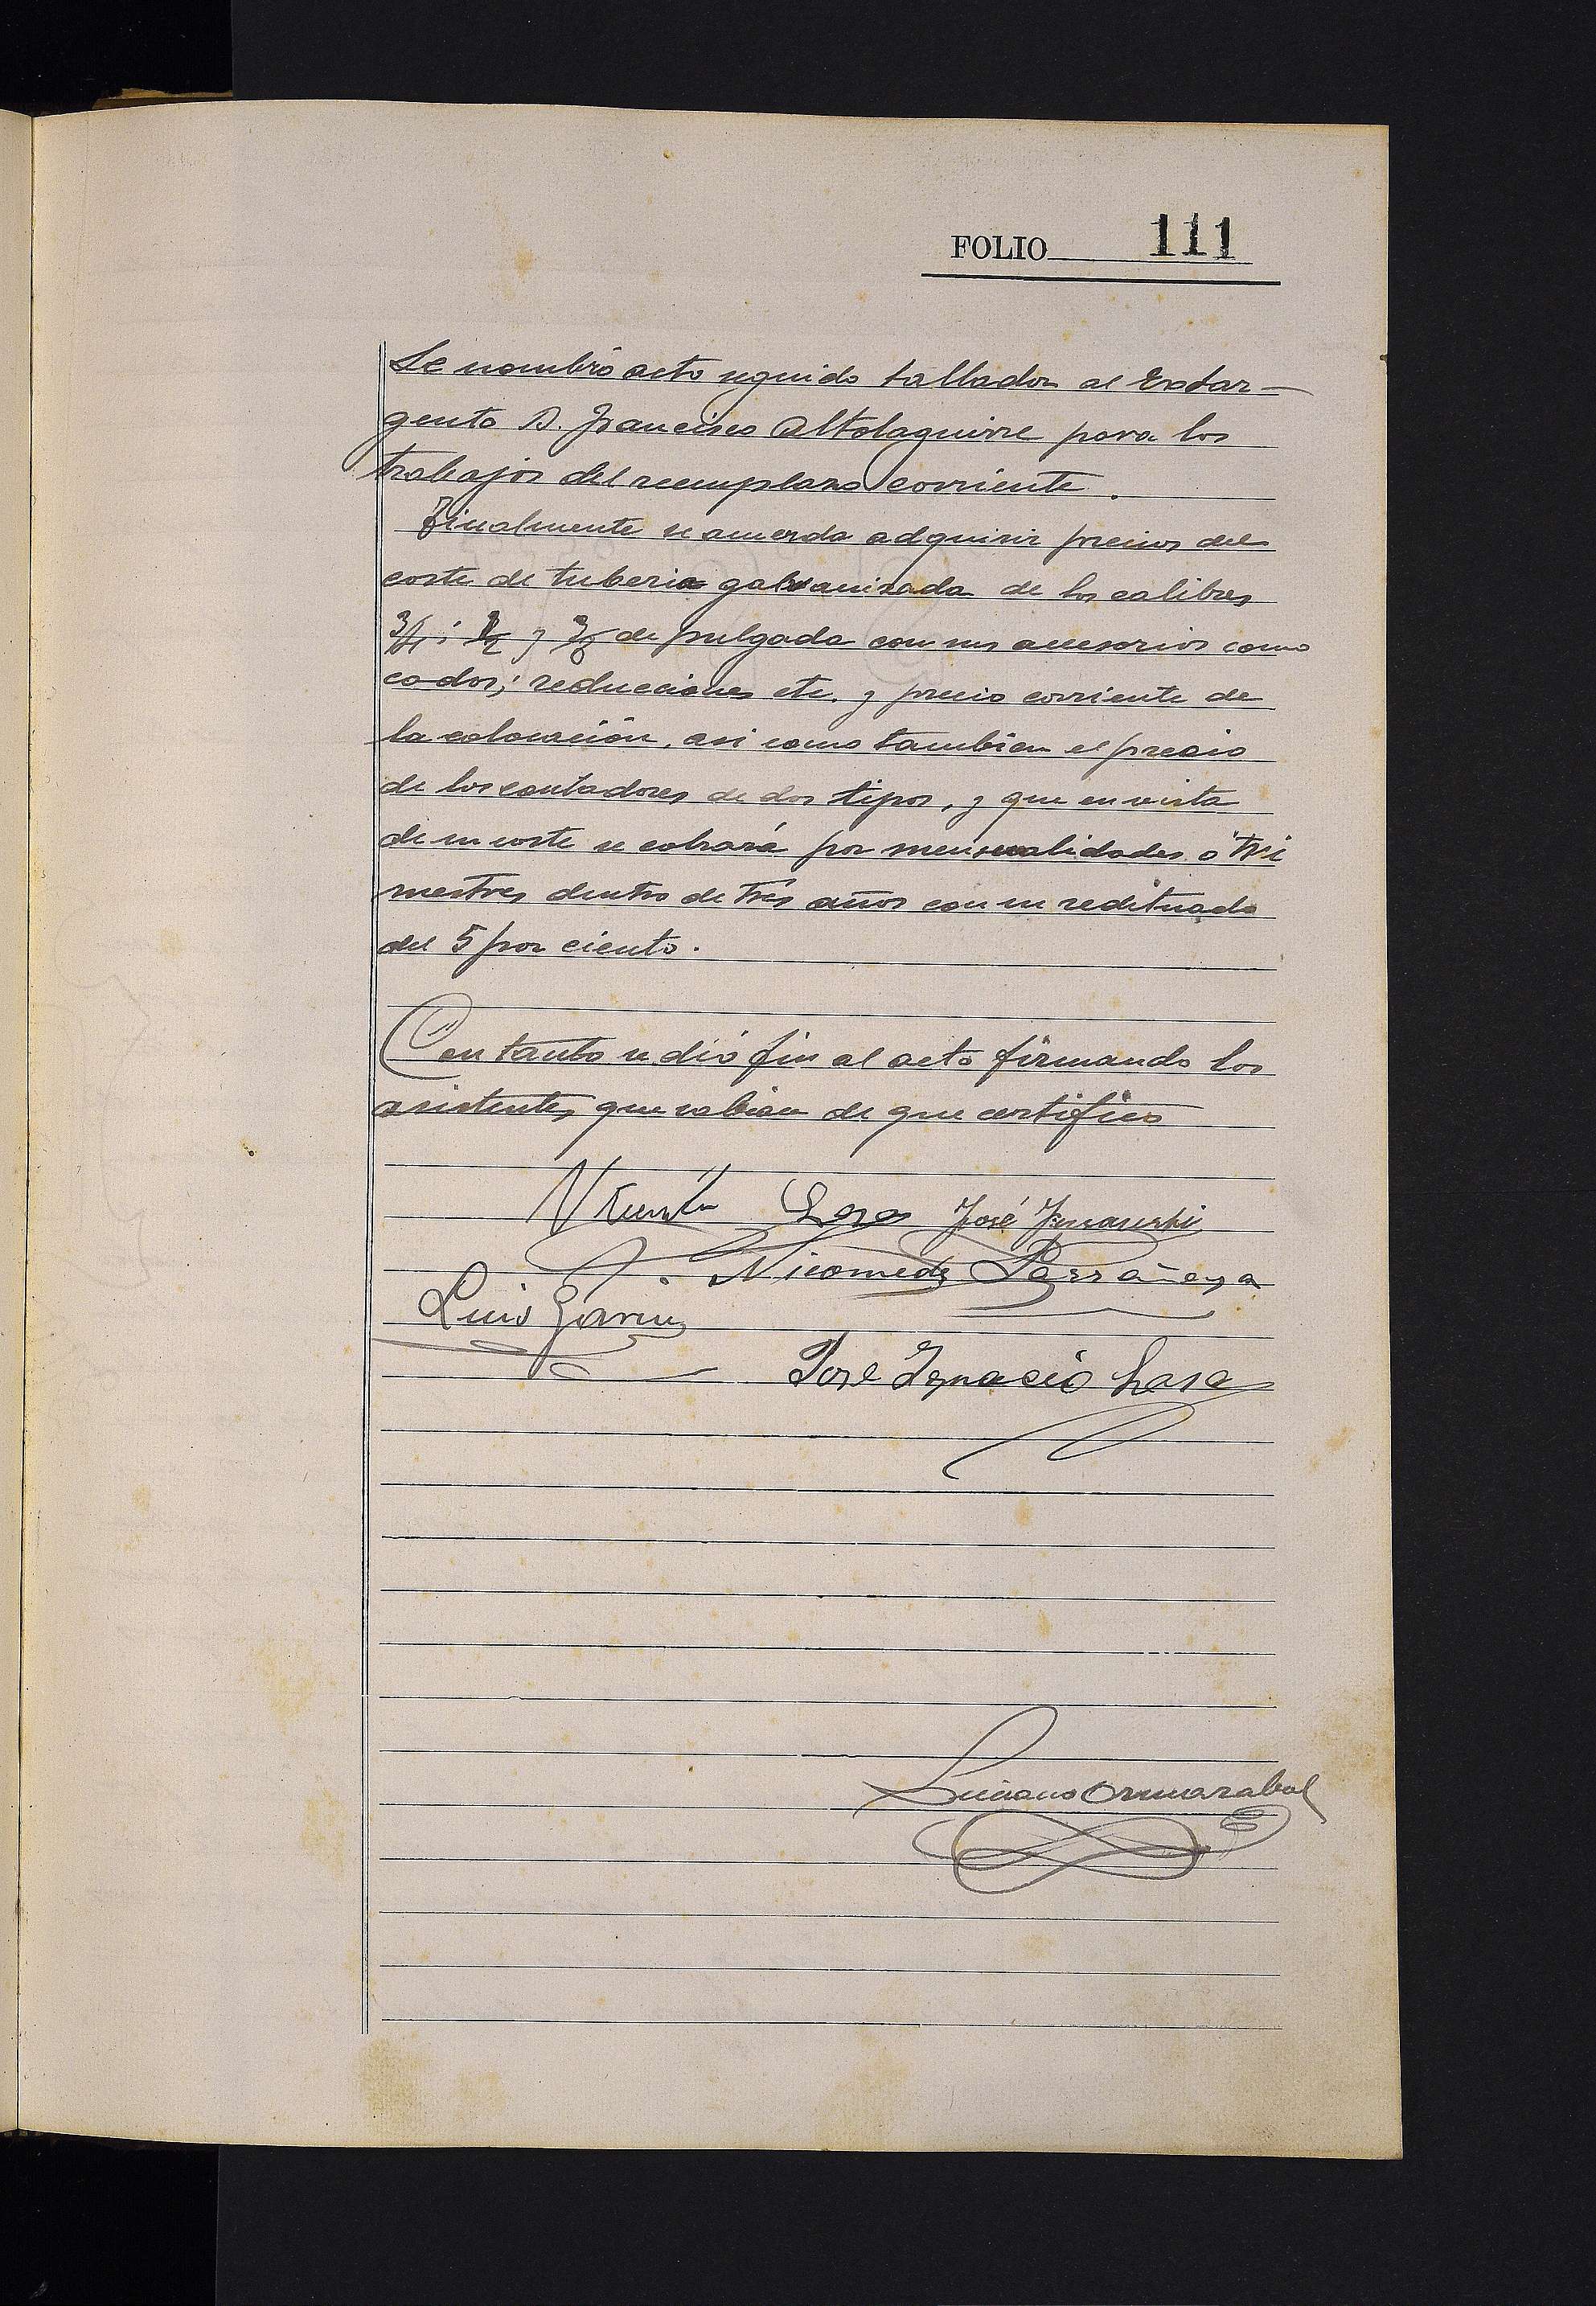 FOLIO 111
Se nombró acto seguido tallador al Exsar-
gento D. Francisco Altolaguirre para los
trabajos del reemplazo corriente.
Finalmente se acuerda adquirir precios del
coste de tuberia galvanizada de los calibres
3/4; 1/2 y 3/8 de pulgada con sus accesorios como
codos; reducciones etc. y precio corriente de
la colocación, asi como tambien el precio
de los contadores de dos tipos, y que en vista
de su coste se cobrará por mensualidades ó tri
mestres dentro de trés años con un redituado
del 5 por ciento.
Con tanto se dió fin al acto firmando los
asistentes que sabian de que certifico
Lasa José
Nicomedes
Luis Garin
José Ignacio Lasa
Luciano Ormazabal